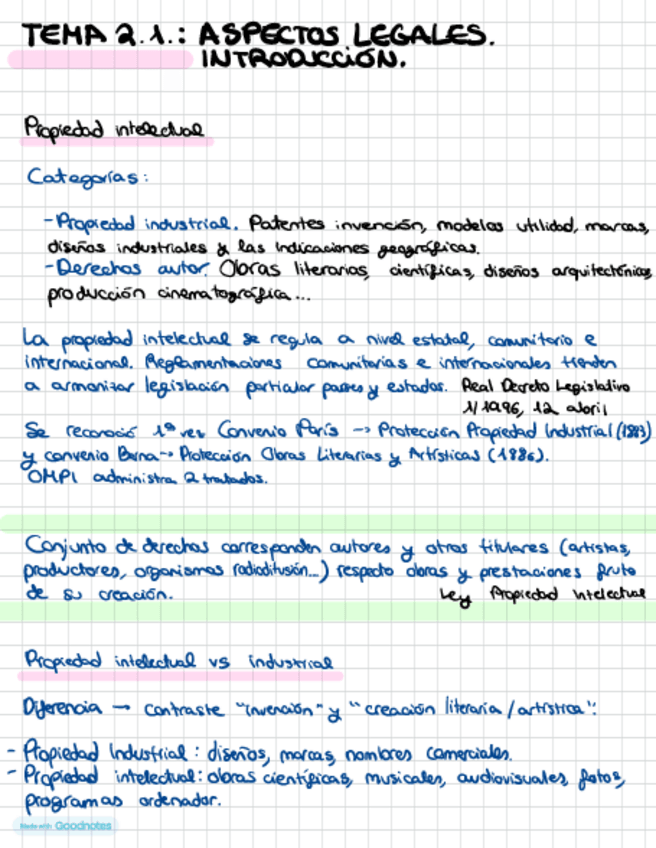 TEMA 2.1.: ASPECTOS LEGALES.
INTRODUCCIÓN.
Propiedad intelectual
Categorías:
- Propiedad industrial. Patentes invención, modelos utilidad, marcas,
diseños industriales y las indicaciones geográficas.
- Derechos autor. Obras literarias, científicas, diseños arquitectónicos,
producción cinematográfica...
La propiedad intelectual se regula a nivel estatal, comunitario e
internacional. Reglamentaciones comunitarias e internacionales tienden
a armonizar legislación particular países y estados. Real Decreto Legislativo
1/1996, 12 abril
Se reconoció 1ª vez Convenio París → Protección Propiedad Industrial (1883)
y convenio Berna → Protección Obras Literarias y Artísticas (1886).
OMPI administra 2 tratados.
Conjunto de derechos corresponden autores y otros titulares (artistas,
productores, organismos radiodifusión...) respecto obras y prestaciones fruto
de su creación. Ley Propiedad Intelectual
Propiedad intelectual vs industrial
Diferencia → contraste "invención" y "creación literaria / artística".
- Propiedad Industrial: diseños, marcas, nombres comerciales.
- Propiedad intelectual: obras científicas, musicales, audiovisuales, fotos,
programas ordenador.
Made with Goodnotes